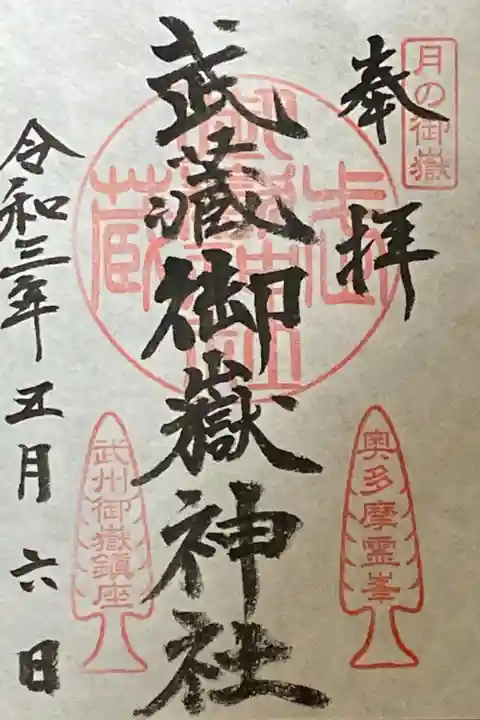 月の御嶽
奉拝
武蔵御嶽神社
奥多摩霊峯
武州御嶽鎮座
令和三年五月六日